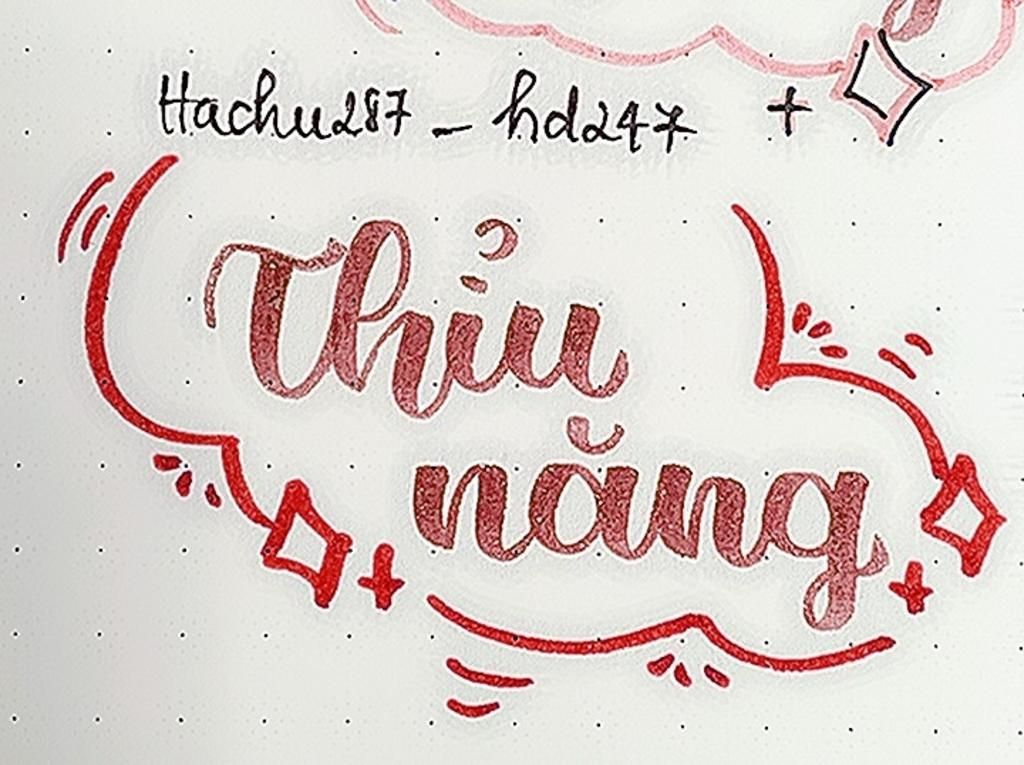 Hachu287 - hd247
Thỉu
năng